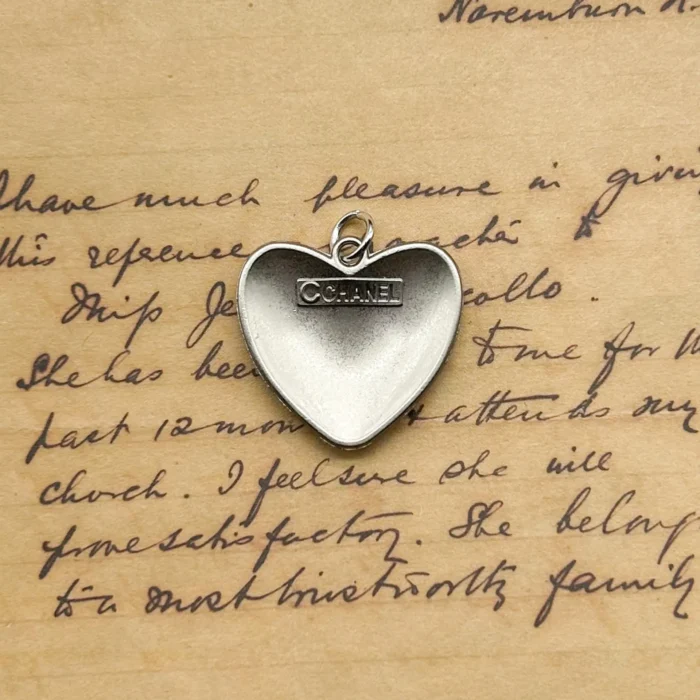 I have much pleasure in givin
this reference
Miss Je collo.
She has bee to me for
past 12 mon & attends my
church. I feel sure she will
prove satisfactory. She belong
to a most trustworthy family
© CHANEL